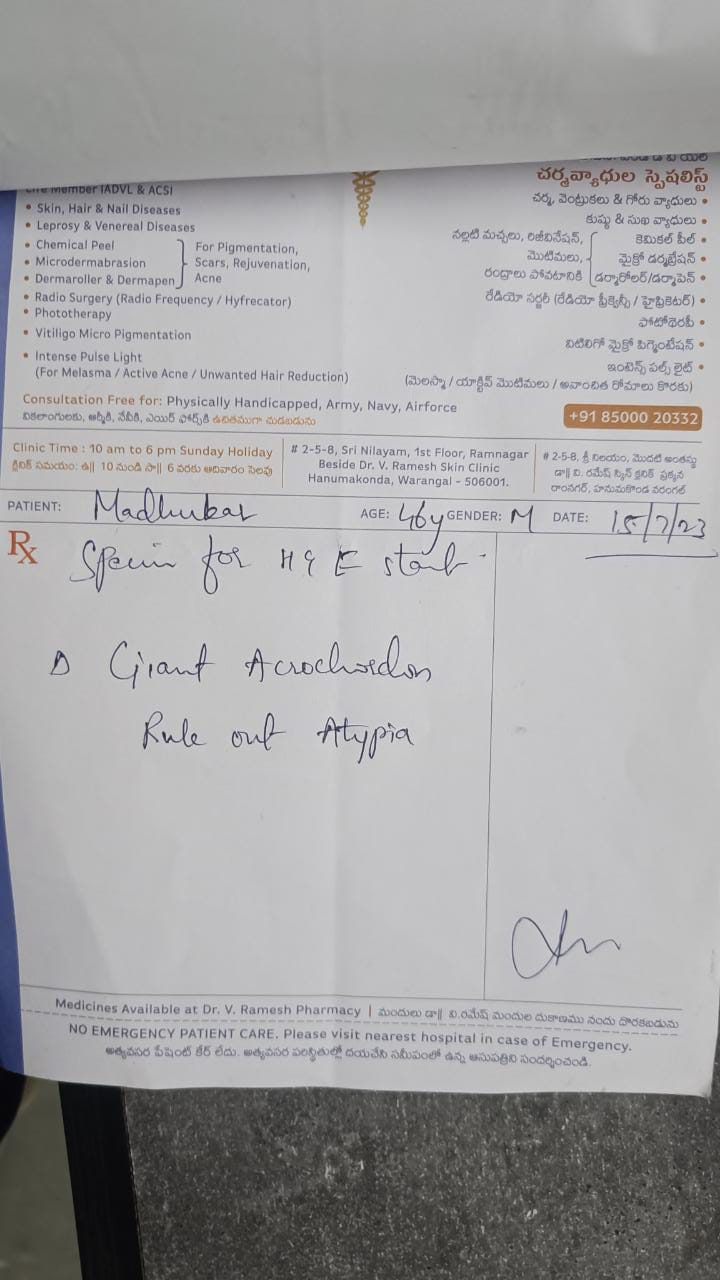 Life Member IADVL & ACSI
• Skin, Hair & Nail Diseases
• Leprosy & Venereal Diseases
• Chemical Peel
• Microdermabrasion
• Dermaroller & Dermapen
For Pigmentation,
Scars, Rejuvenation,
Acne
• Radio Surgery (Radio Frequency / Hyfrecator)
• Phototherapy
• Vitiligo Micro Pigmentation
• Intense Pulse Light
(For Melasma / Active Acne / Unwanted Hair Reduction)
చర్మవ్యాధుల స్పెషలిస్ట్
చర్మ, వెంట్రుకలు & గోరు వ్యాధులు •
కుష్ఠు & సుఖ వ్యాధులు •
నల్లటి మచ్చలు, రిజీవినేషన్,
మొటిమలు,
రంద్రాలు పోవటానికి
కెమికల్ పీల్ •
మైక్రో డర్మబ్రేషన్ •
డర్మారోలర్/డర్మాపెన్ •
రేడియో సర్జరీ (రేడియో ఫ్రీక్వెన్సీ / హైఫ్రికెటర్) •
ఫోటోథెరపీ •
విటిలిగో మైక్రో పిగ్మెంటేషన్ •
ఇంటెన్స్ పల్స్ లైట్ •
(మెలస్మా / యాక్టివ్ మొటిమలు / అవాంచిత రోమాలు కొరకు)
Consultation Free for: Physically Handicapped, Army, Navy, Airforce
వికలాంగులకు, ఆర్మీకి, నేవీకి, ఎయిర్ ఫోర్స్‌కి ఉచితముగా చూడబడును
+91 85000 20332
Clinic Time : 10 am to 6 pm Sunday Holiday
క్లినిక్ సమయం: ఉ|| 10 నుండి సా|| 6 వరకు ఆదివారం సెలవు
# 2-5-8, Sri Nilayam, 1st Floor, Ramnagar
Beside Dr. V. Ramesh Skin Clinic
Hanumakonda, Warangal - 506001.
# 2-5-8, శ్రీ నిలయం, మొదటి అంతస్తు
డా|| వి. రమేష్ స్కిన్ క్లినిక్ ప్రక్కన
రాంనగర్, హనుమకొండ వరంగల్
PATIENT: Madhukar AGE: 46y GENDER: M DATE: 15/7/23
Rx
for H & E
Giant Acrochordon
Rule out Atypia
Medicines Available at Dr. V. Ramesh Pharmacy | మందులు డా|| వి.రమేష్ మందుల దుకాణము నందు దొరకబడును
NO EMERGENCY PATIENT CARE. Please visit nearest hospital in case of Emergency.
అత్యవసర పేషెంట్ కేర్ లేదు. అత్యవసర పరిస్థితుల్లో దయచేసి సమీపంలో ఉన్న ఆసుపత్రిని సందర్శించండి.